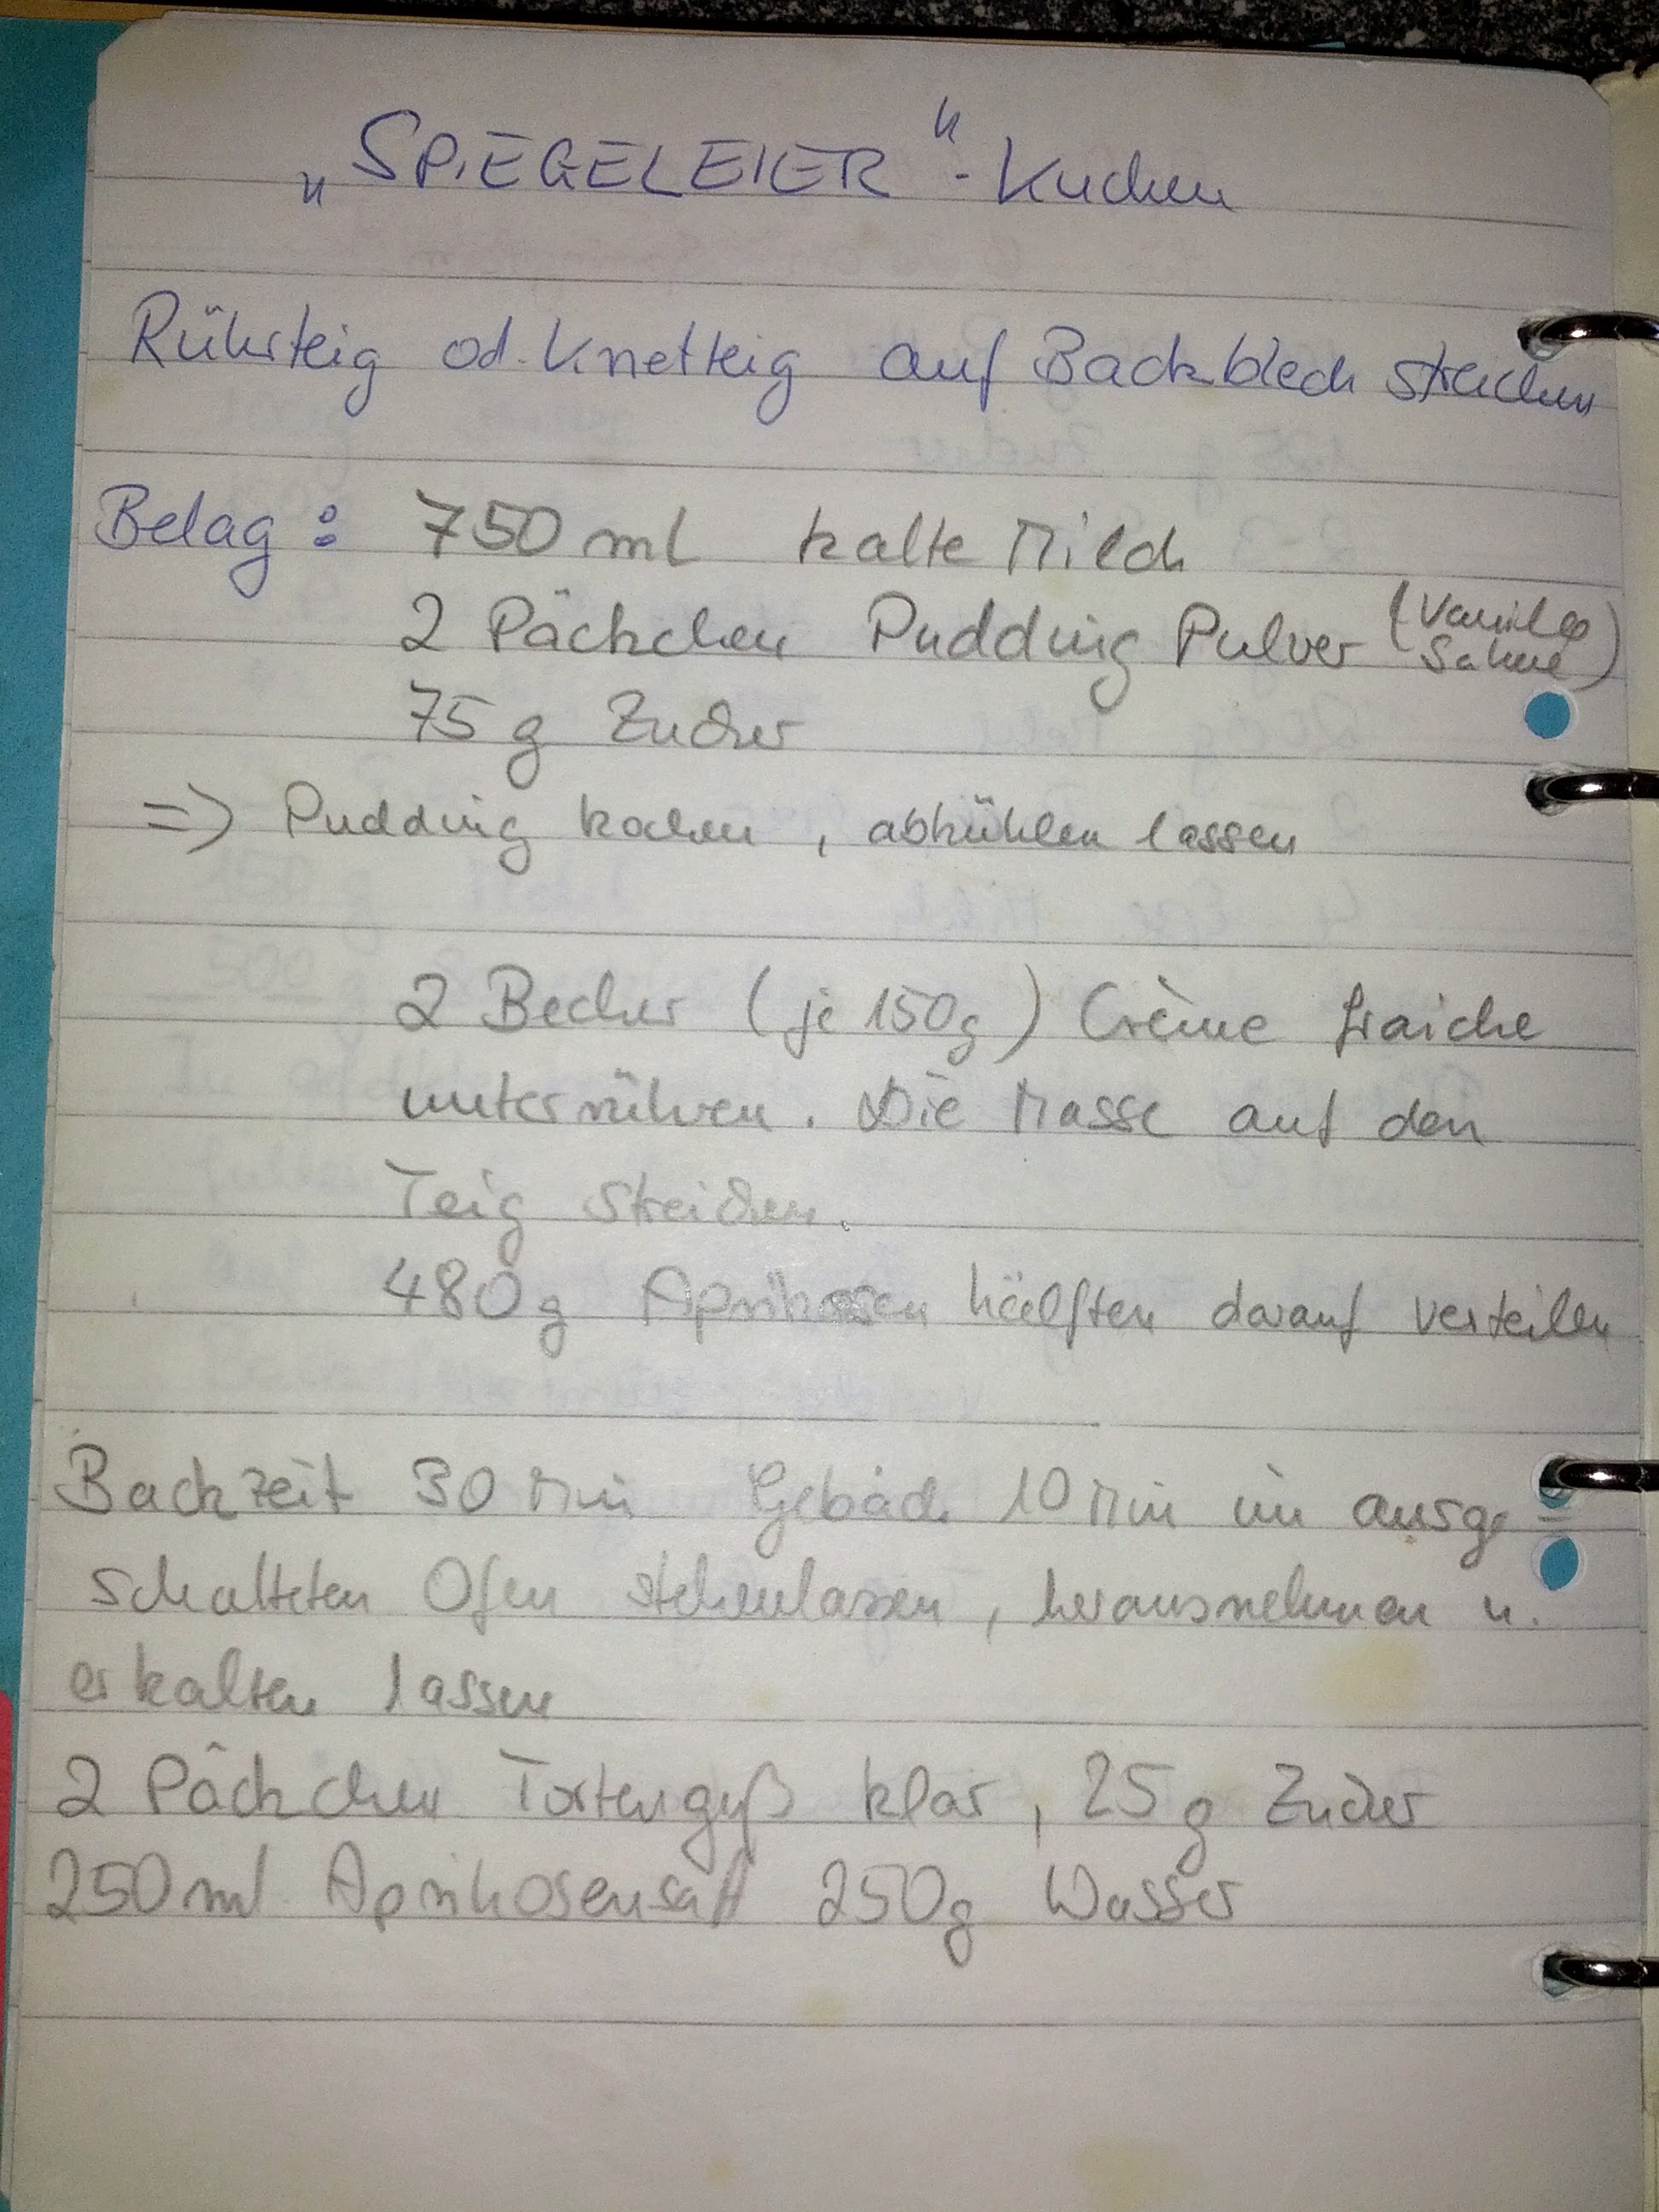 „SPIEGELEIER"-Kuchen
Rührteig od. Knetteig auf Backblech streichen
Belag: 750 ml kalte Milch
2 Päckchen Pudding Pulver (Vanille Sahne)
75 g Zucker
=> Pudding kochen, abkühlen lassen
2 Becher (je 150g) Crème fraiche
unterrühren. Die Masse auf den
Teig streichen.
480g Aprikosen hälften darauf verteilen
Backzeit 30 Min Gebäck 10 Min im ausge=
schalteten Ofen stehenlassen, herausnehmen u.
erkalten lassen
2 Päckchen Tortenguß klar, 25g Zucker
250ml Aprikosensaft 250g Wasser